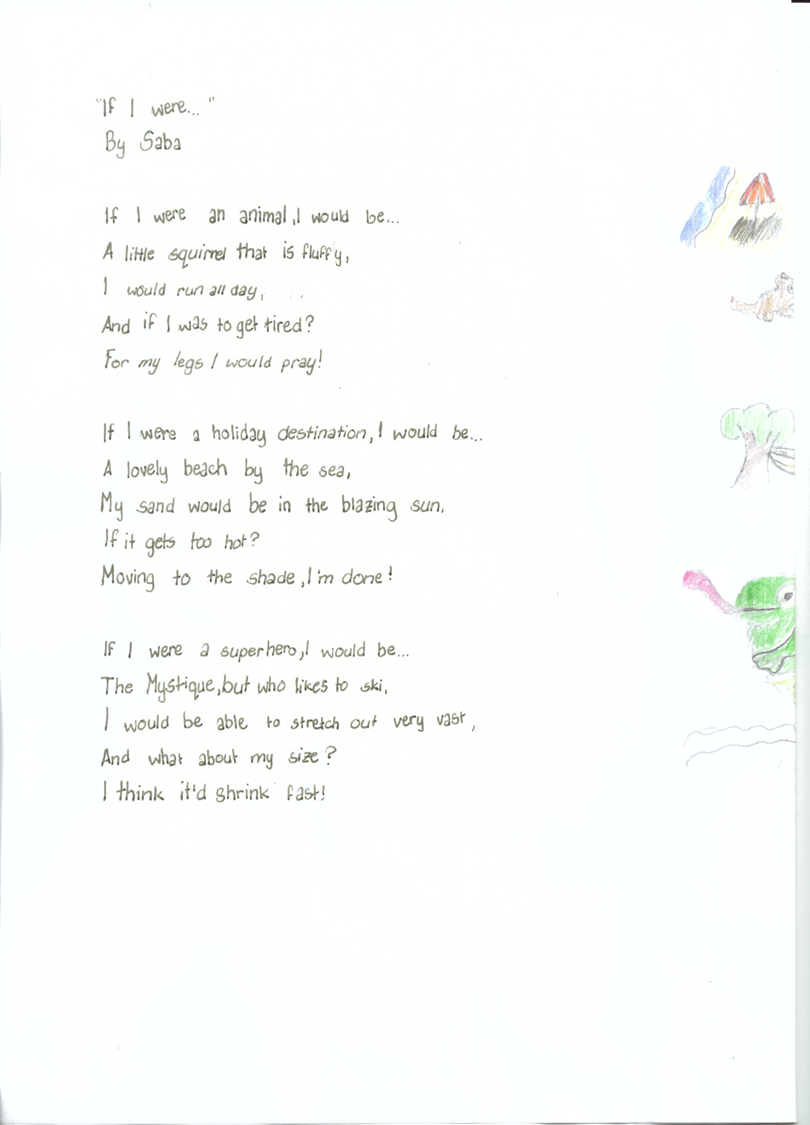 "If I were..."
By Saba
If I were an animal, I would be...
A little squirrel that is fluffy,
I would run all day,
And if I was to get tired?
For my legs I would pray!
If I were a holiday destination, I would be...
A lovely beach by the sea,
My sand would be in the blazing sun,
If it gets too hot?
Moving to the shade, I'm done!
If I were a superhero, I would be...
The Mystique, but who likes to ski,
I would be able to stretch out very vast,
And what about my size?
I think it'd shrink fast!